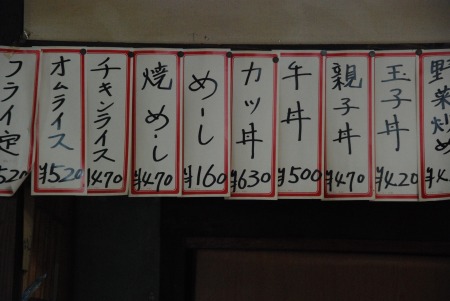 フライ定
520
オムライス
¥520
チキンライス
¥470
焼めし
¥470
めし
¥160
カツ丼
¥630
牛丼
¥500
親子丼
¥470
玉子丼
¥420
野菜炒め
¥4